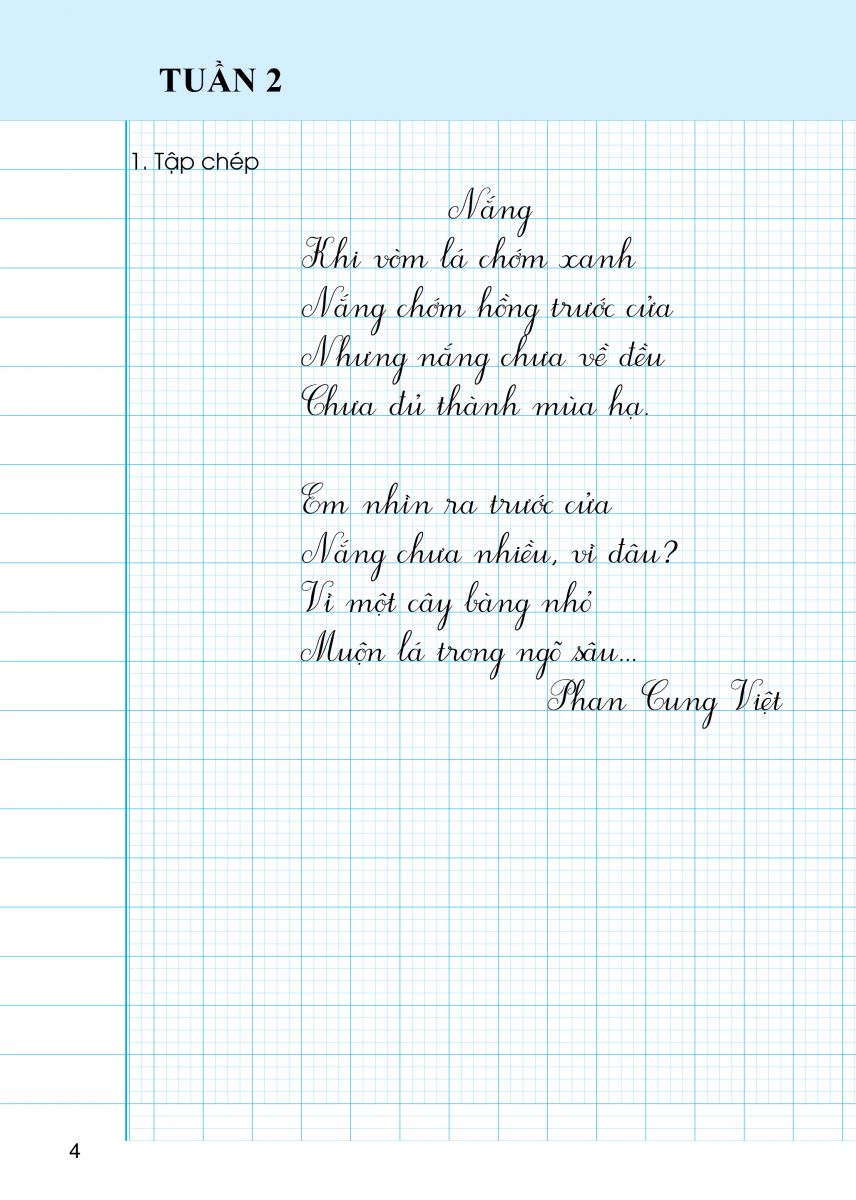 TUẦN 2
1. Tập chép
Nắng
Khi vòm lá chớm xanh
Nắng chớm hồng trước cửa
Nhưng nắng chưa về đều
Chưa đủ thành mùa hạ.
Em nhìn ra trước cửa
Nắng chưa nhiều, vì đâu?
Vì một cây bàng nhỏ
Muộn lá trong ngõ sâu...
Phan Cung Việt
4